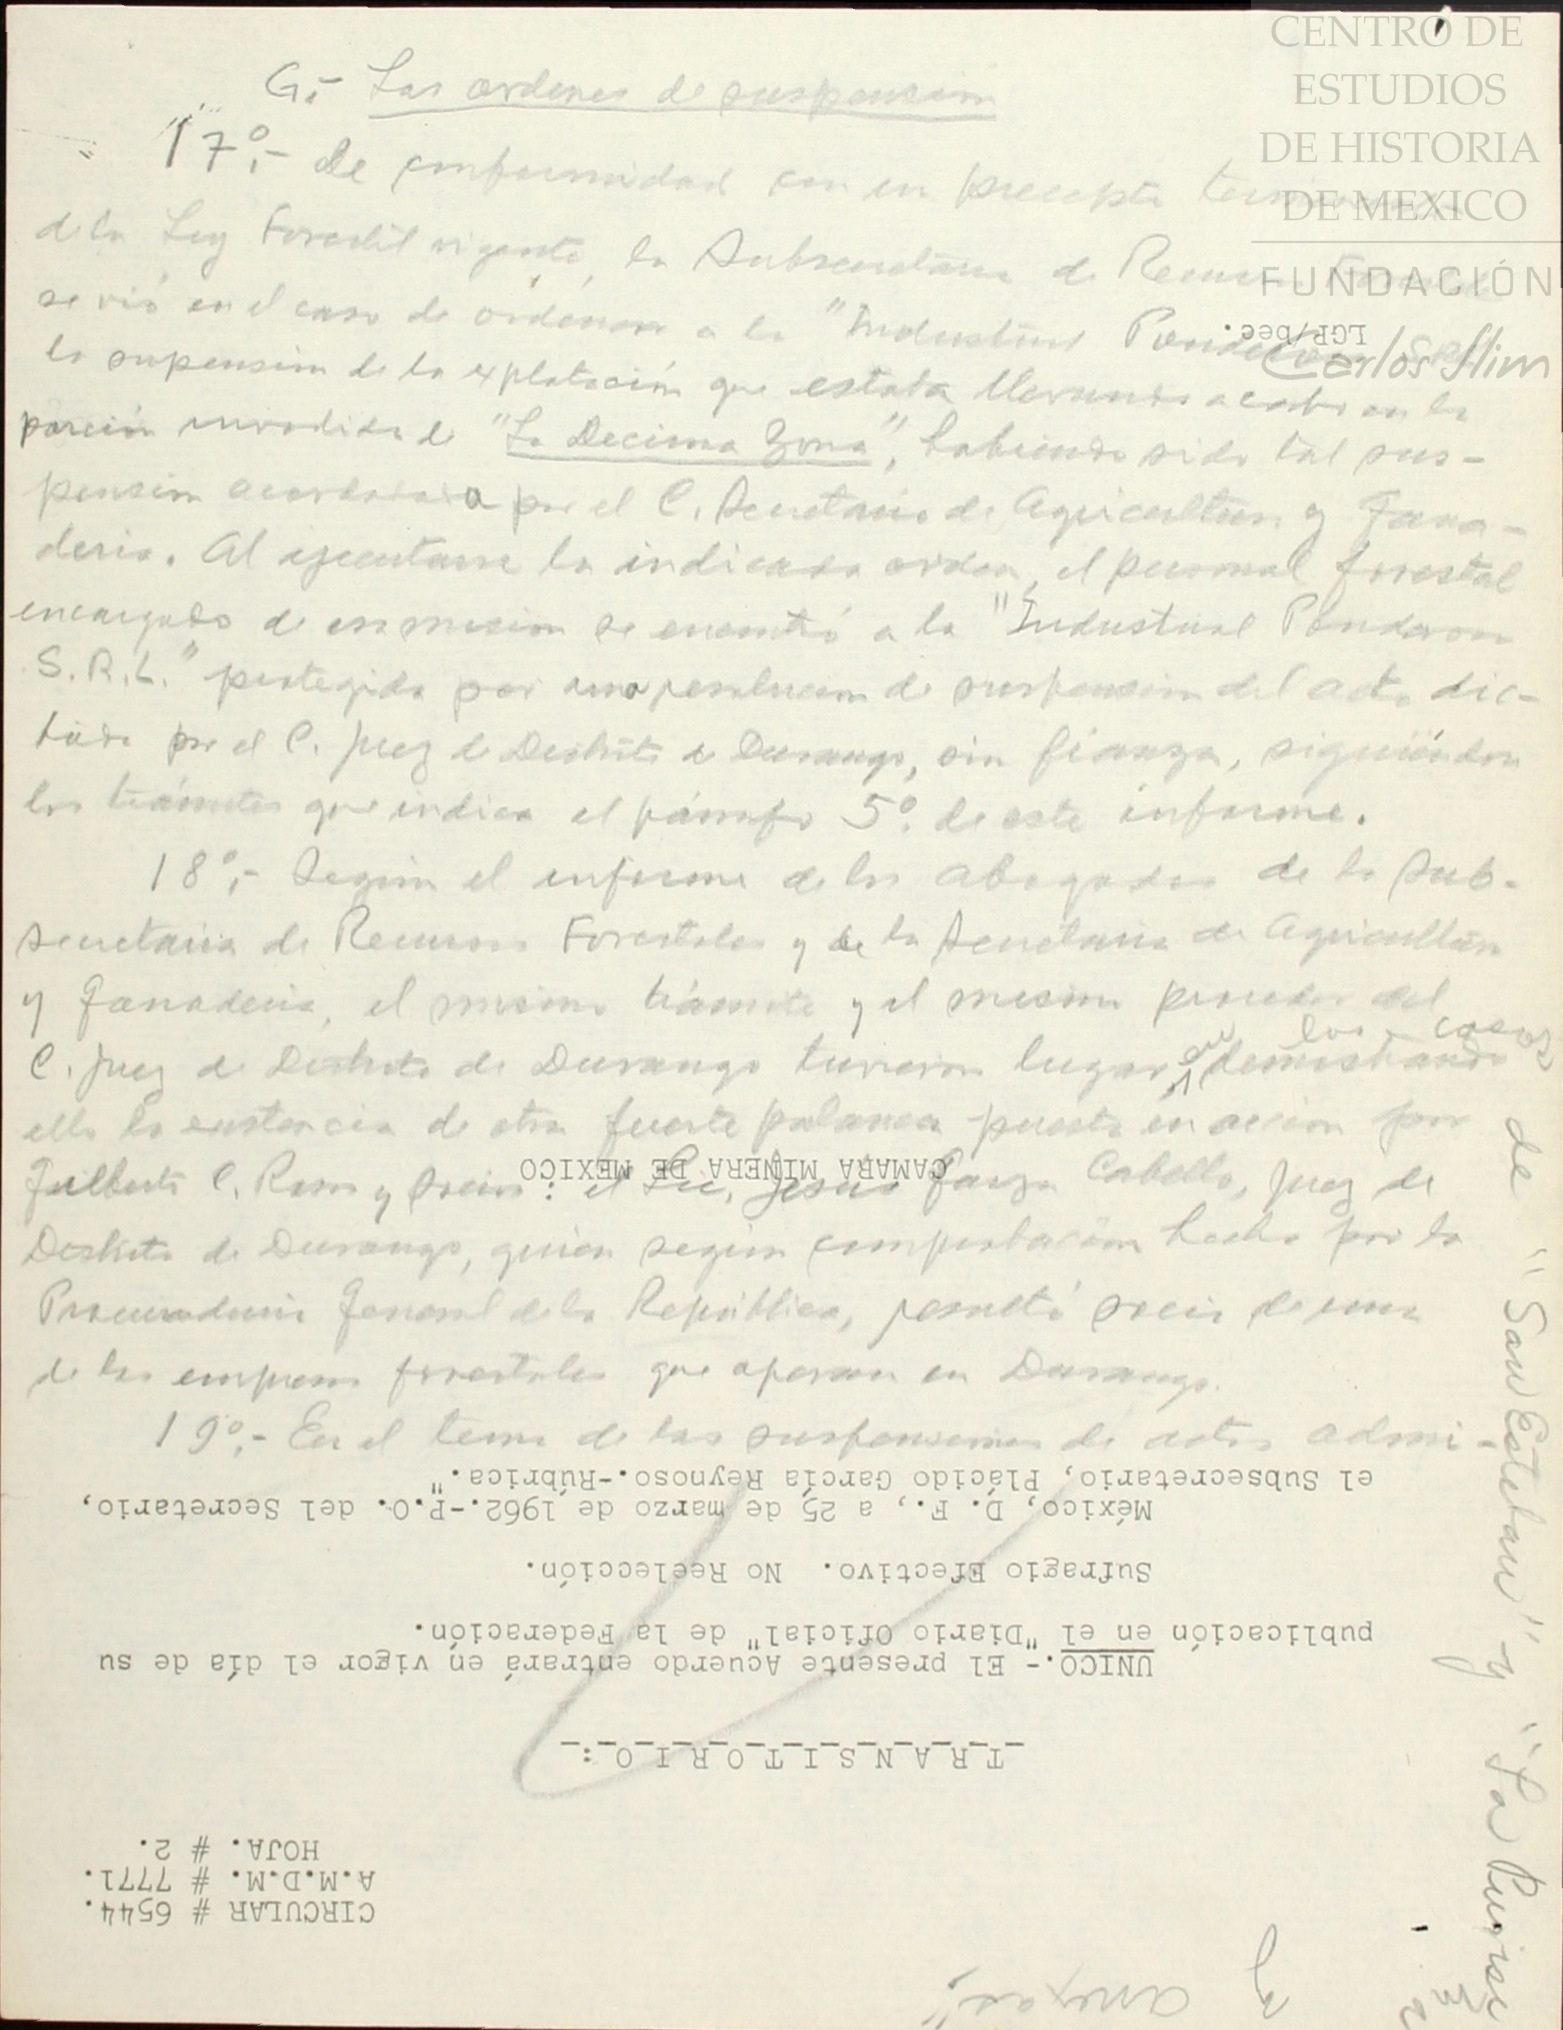 CENTRO DE
ESTUDIOS
DE HISTORIA
DE MEXICO
FUNDACIÓN
Carlos Slim
G.- Las ordenes de suspension
17º.- De conformidad con un precepto
de la Ley Forestal vigente, la Subsecretaria de Recursos
se vió en el caso de ordenar a la "Industrial Ponderosa SRL
la supension de la explotación que estaba llevando a cabo en la
porción invadida de "La Decima Zona", habiendo sido tal sus-
pension acordada por el C. Secretario de Agricultura y Gana-
deria. Al ejecutarse la indicada orden, el personal forestal
encargado de esa mision se encontró a la "Industrial Ponderosa
S.R.L." protegida por una resolucion de suspension del acto dic-
tada por el C. Juez de Distrito de Durango, sin fianza, siguiéndose
los trámites que indica el párrafo 5º. de este informe.
18º.- Segun el informe de los abogados de la Sub-
secretaria de Recursos Forestales y de la Secretaria de Agricultura
y Ganaderia, el mismo trámite y el mismo proceder del
C. Juez de Distrito de Durango tuvieron lugar en los casos demostrando
de "San Esteban" y "La Purisi
anexas",
ello la existencia de otra fuerte palanca puesta en accion por
Gilberto C. Rosas y socios: el Lic. Jesús Garza Cabello, Juez de
Distrito de Durango, quien segun comprobación hecha por la
Procuraduria General de la Republica, resultó socio de una
de las empresas forestales que operan en Durango.
19º.- En el tema de las suspensiones de actos admi-
CIRCULAR # 6544.
A.M.D.M. # 7771.
HOJA. # 2.
T_R_A_N_S_I_T_O_R_I_O_:_
UNICO.- El presente Acuerdo entrará en vigor el día de su
publicación en el "Diario Oficial" de la Federación.
Sufragio Efectivo. No Reelección.
México, D. F., a 25 de marzo de 1962.-P.O. del Secretario,
el Subsecretario, Plácido García Reynoso.-Rúbrica."
CAMARA MINERA DE MEXICO
LGP/bec.